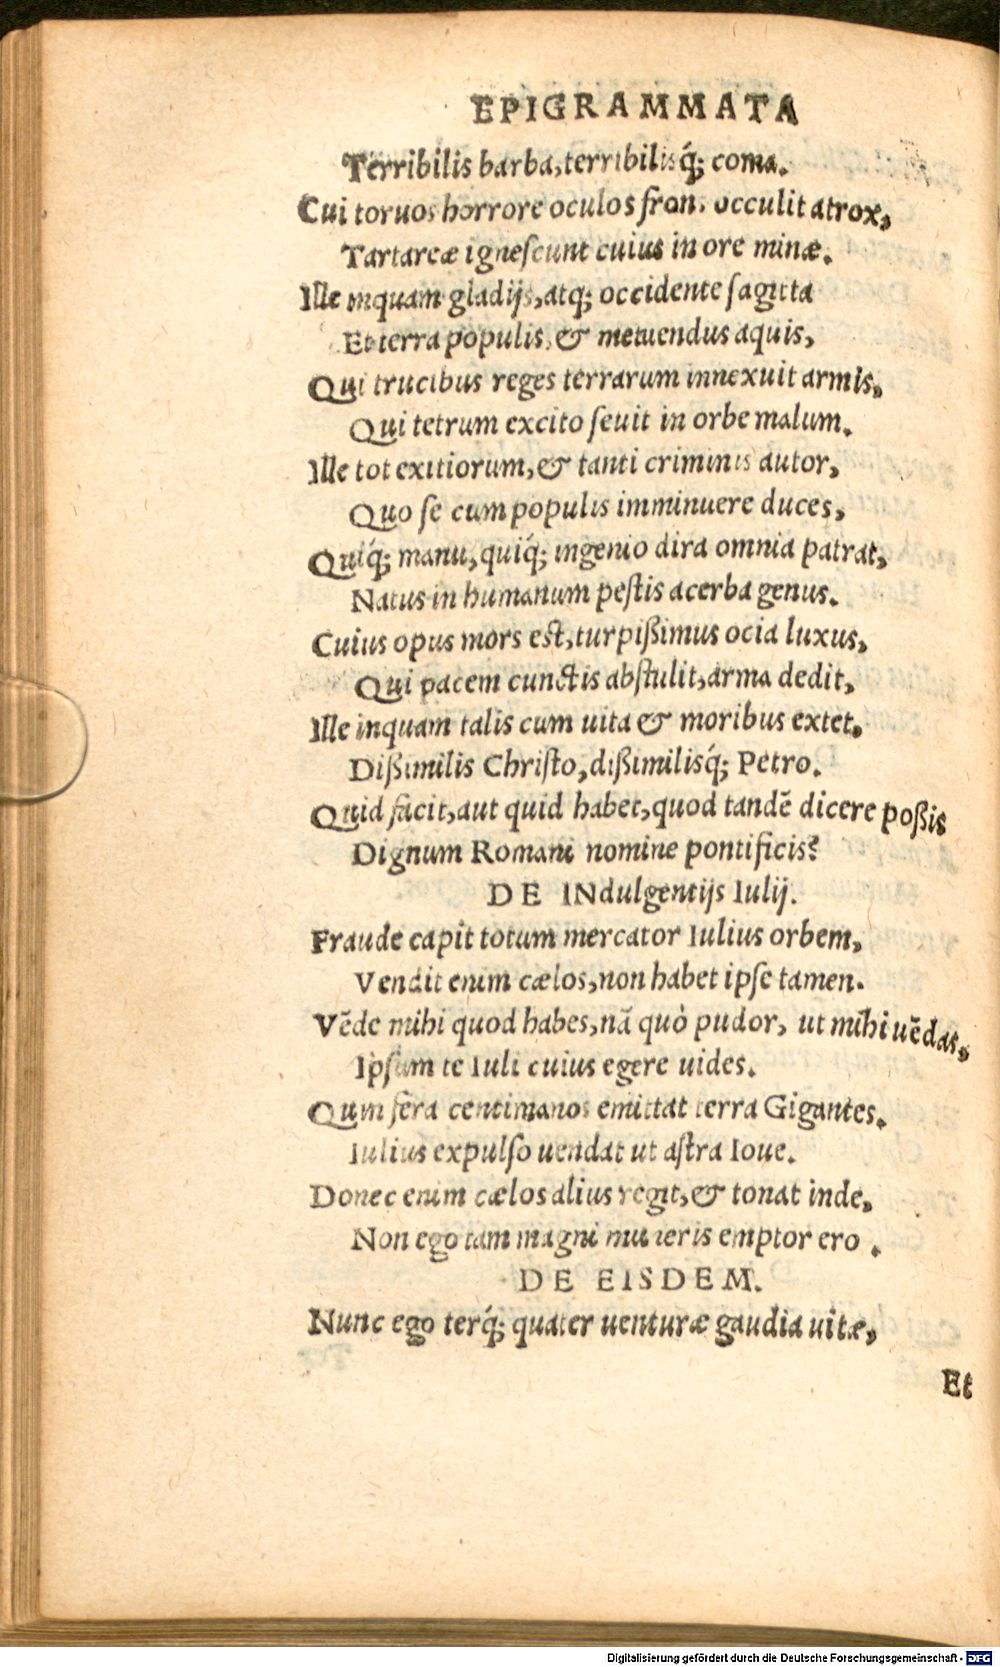 EPIGRAMMATA
Terribilis barba, terribilisq́; coma.
Cui toruos horrore oculos fron. occulit atrox,
Tartareæ ignescunt cuius in ore minæ.
Ille inquam gladijs, atq; occidente sagitta
Et terra populis, & metuendus aquis,
Qui trucibus reges terrarum innexuit armis,
Qui tetrum excito seuit in orbe malum.
Ille tot exitiorum, & tanti criminis autor,
Quo se cum populis imminuere duces,
Quiq́; manu, quiq́; ingenio dira omnia patrat,
Natus in humanum pestis acerba genus.
Cuius opus mors est, turpißimus ocia luxus,
Qui pacem cunctis abstulit, arma dedit,
Ille inquam talis cum uita & moribus extet.
Dißimilis Christo, dißimilisq́; Petro.
Quid facit, aut quid habet, quod tandē dicere poßis
Dignum Romani nomine pontificis?
DE INdulgentijs Iulij.
Fraude capit totum mercator Iulius orbem,
Vendit enim cælos, non habet ipse tamen.
Vēde mihi quod habes, nā quò pudor, ut mihi uēdas,
Ipsum te Iuli cuius egere uides.
Qum fera centimanos emittat terra Gigantes.
Iulius expulso uendat ut astra Ioue.
Donec enim cælos alius regit, & tonat inde,
Non ego tam magni muneris emptor ero.
DE EISDEM.
Nunc ego terq́; quater uenturæ gaudia uitæ,
Et
Digitalisierung gefördert durch die Deutsche Forschungsgemeinschaft - DFG